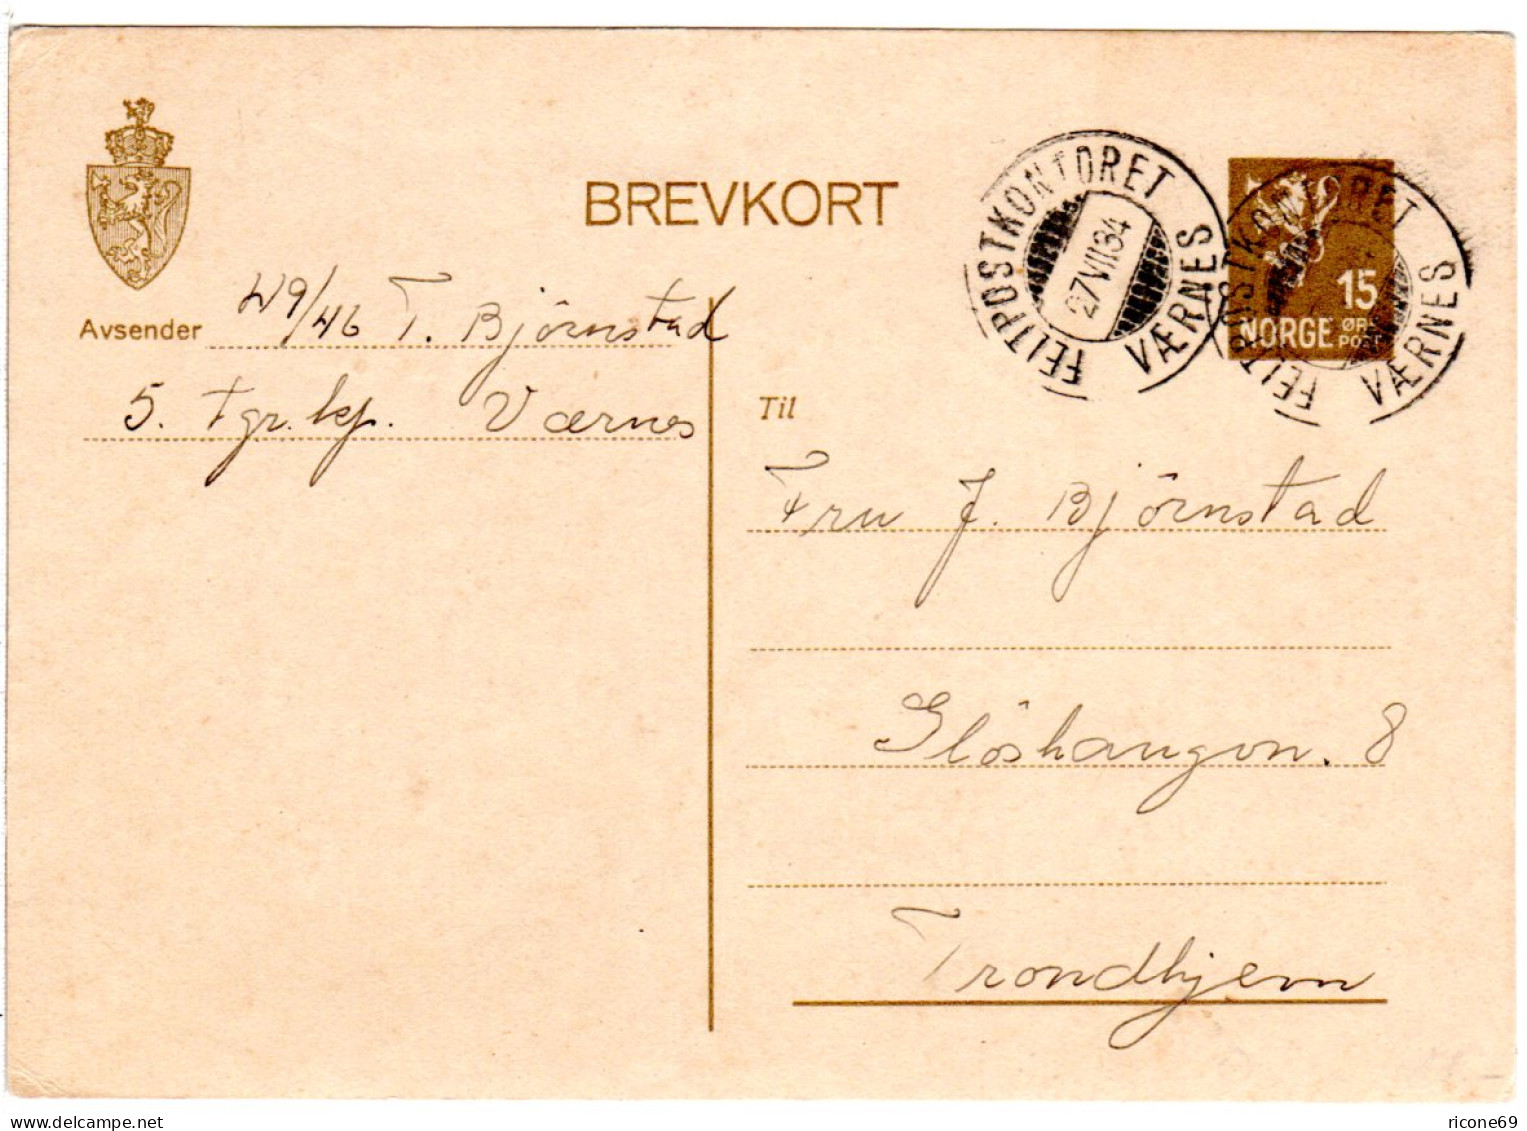 BREVKORT
FELTPOSTKONTORET
27 VII 34
VÆRNES
FELTPOSTKONTORET
VÆRNES
15
NORGE ØRE
POST
Avsender 49/46 T. Björnstad
5. tgr. kp. Værnes
Til
Fru J. Björnstad
Glöshaugvn. 8
Trondhjem
delcampe.net
ricone69